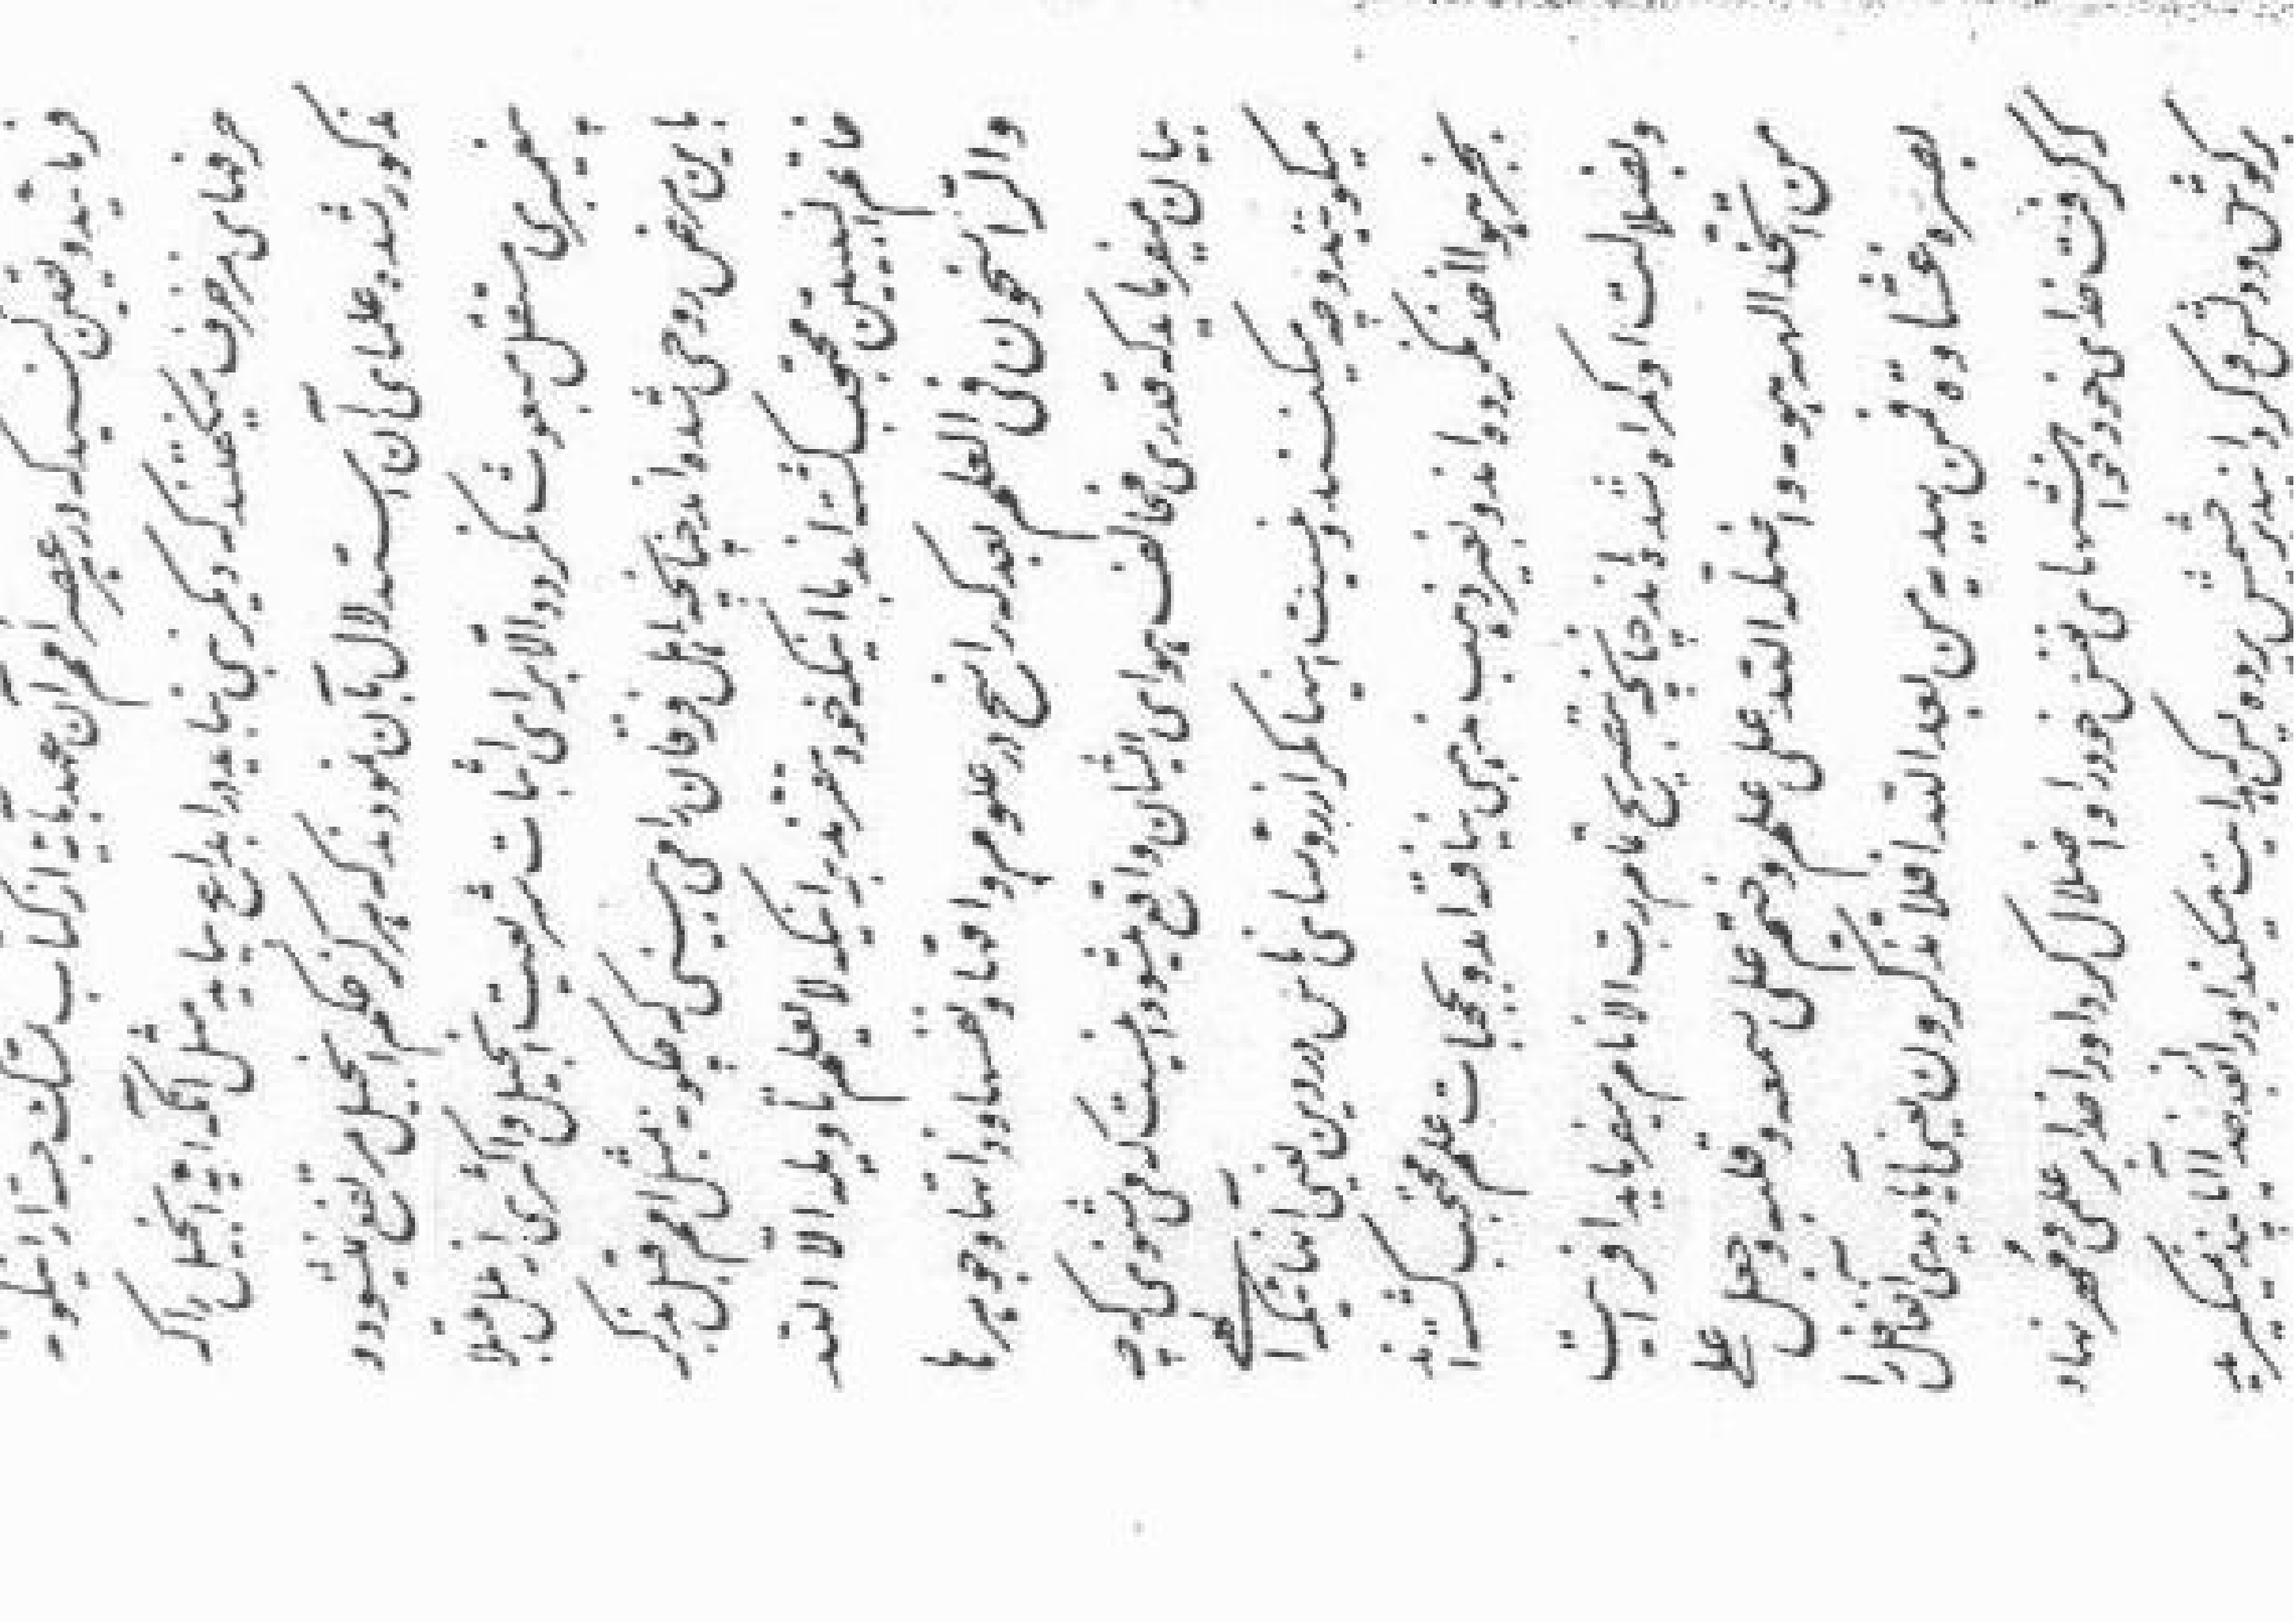 فرمائید و یقین کنید که در هر عصر امم آن عهد بآیهٔ از کتاب تمسک جسته از اینگونه
حرفهای مزخرف میگفتند که دیگر نبی نباید در ابداع بیاید مثل آنکه آیه انجیل را که
مذکور شد علمای آن استدلال بآن نمودند که هرگز حکم انجیل مرتفع نمیشود و
پیغمبری مستقل مبعوث نگردد الا برای اثبات شریعت انجیل و اکثری از ملل مبتلا
باین مرض روحی شده‌اند چنانچه اهل فرقان را می‌بینی که چگونه بمثل امم قبل بذکر
خاتم النبیین محتجب گشته‌اند با اینکه خود مقرند بر اینکه لا یعلم تاویله الا اللّه
والراسخون فی العلم بعد که راسخ در علوم و امها و نفسها و ذاتها و جوهرها
بیان میفرماید که قدری مخالف هوای ایشان واقع میشود اینست که میشنوی که چه
میگویند و چه میکنند و نیست اینها مگر از رؤسای ناس در دین یعنی آنهائیکه الهی
بجز هوی اخذ نکرده‌اند و بغیر ذهب مذهبی نیافته‌اند و بحجبات علم محتجب گشته‌اند
و بضلالت او گمراه شده‌اند چنانچه بتصریح تمام رب الانام میفرماید افرایت
من اتخذ الهه هویه و اضله اللّه علی علم و ختم علی سمعه و قلبه و جعل علی
بصره غشاوة فمن یهدیه من بعد اللّه افلا تذکرون یعنی آیا دیدی آن غافل را
که گرفت خدای خود خواهشهای نفس خود را و اضلال کرد او را خدا بر علمی و مهر نهاد
بر گوش و دلش و گردانید بر چشمش پرده پس که هدایت میکند او را از بعد خدا آیا پند نمیگیرید